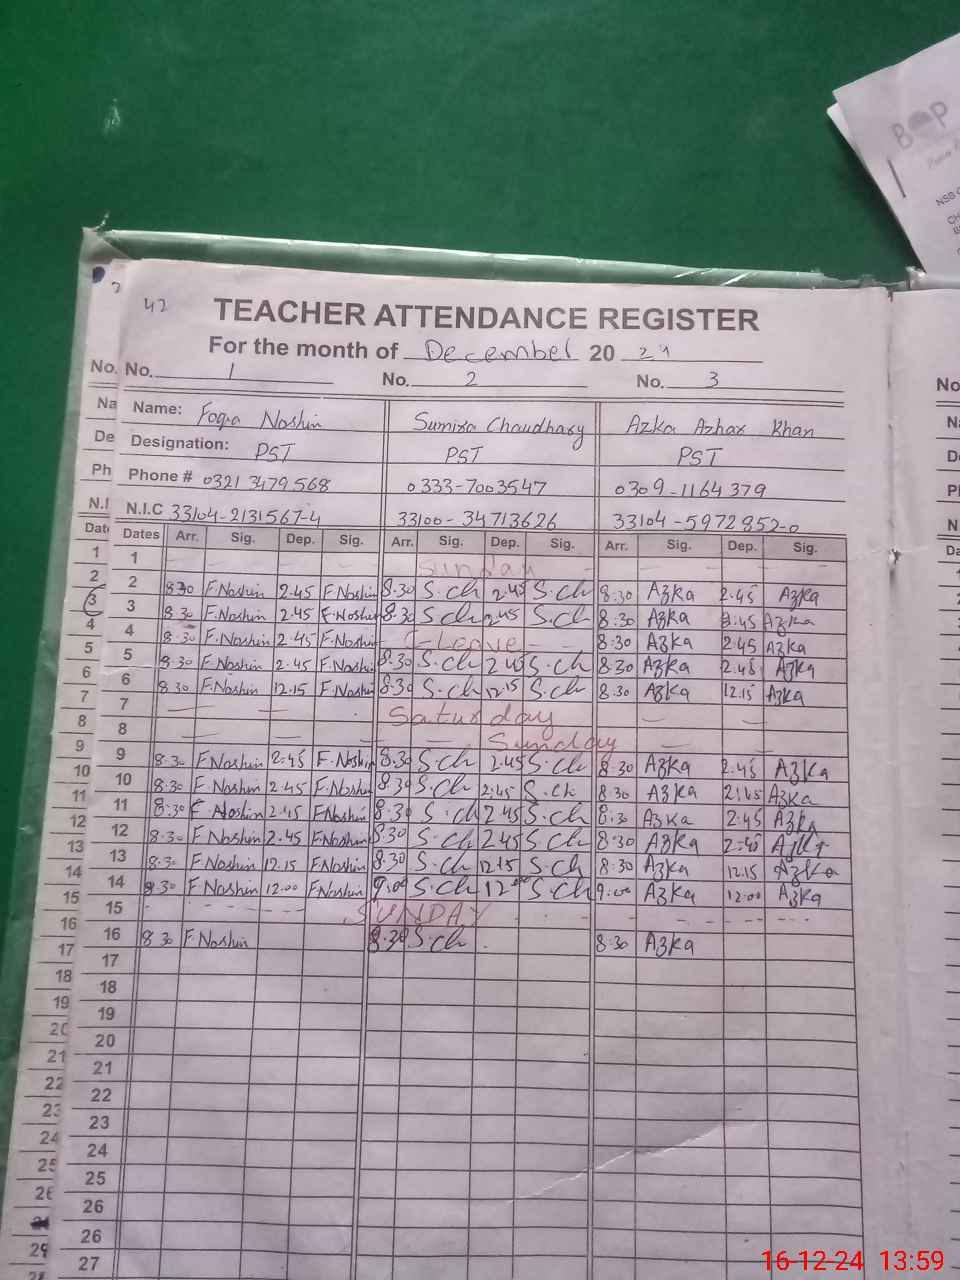 BOP
NSB
42
TEACHER ATTENDANCE REGISTER
For the month of December 20 24
No. No. 1 No. 2 No. 3 No
Na Name: Foqia Noshin Sumixa Chaudhary Azka Azhar Khan
De Designation: PST PST PST
Ph Phone # 0321 3479568 0333-7003547 0309-1164379
N.I N.I.C 33104-2131567-4 33100-34713626 33104-5972852-0
Dat Dates Arr. Sig. Dep. Sig. Arr. Sig. Dep. Sig. Arr. Sig. Dep. Sig.
1 1 Sunday
2 2 8.30 F.Noshin 2.45 F.Noshin 8.30 S.ch 2.45 S.ch 8:30 Azka 2.45 Azka
3 3 8.30 F.Noshin 2.45 F.Noshin 8.30 S.ch 2.45 S.ch 8:30 Azka 2.45 Azka
4 4 8.30 F.Noshin 2.45 F.Noshin C-Leave 8:30 Azka 2.45 Azka
5 5 8.30 F.Noshin 2.45 F.Noshin 8.30 S.ch 2.45 S.ch 8:30 Azka 2.45 Azka
6 6 8.30 F.Noshin 12.15 F.Noshin 8.30 S.ch 12.15 S.ch 8:30 Azka 12.15 Azka
7 7 Saturday
8 8 Sunday
9 9 8.30 F.Noshin 2.45 F.Noshin 8.30 S.ch 2.45 S.ch 8.30 Azka 2.45 Azka
10 10 8.30 F.Noshin 2.45 F.Noshin 8.30 S.ch 2:45 S.ch 8:30 Azka 2:45 Azka
11 11 8:30 F.Noshin 2.45 F.Noshin 8.30 S.ch 2.45 S.ch 8:30 Azka 2.45 Azka
12 12 8.30 F.Noshin 2.45 F.Noshin 8.30 S.ch 2.45 S.ch 8:30 Azka 2:45 Azka
13 13 8.30 F.Noshin 12.15 F.Noshin 8.30 S.ch 12.15 S.ch 8:30 Azka 12.15 Azka
14 14 8.30 F.Noshin 12.00 F.Noshin 9.00 S.ch 12.00 S.ch 9:00 Azka 12.00 Azka
15 15 SUNDAY
16 16 8.30 F.Noshin 8.30 S.ch 8.30 Azka
17 17
18 18
19 19
20 20
21 21
22 22
23 23
24 24
25 25
26 26
26
29 27
16-12-24 13:59